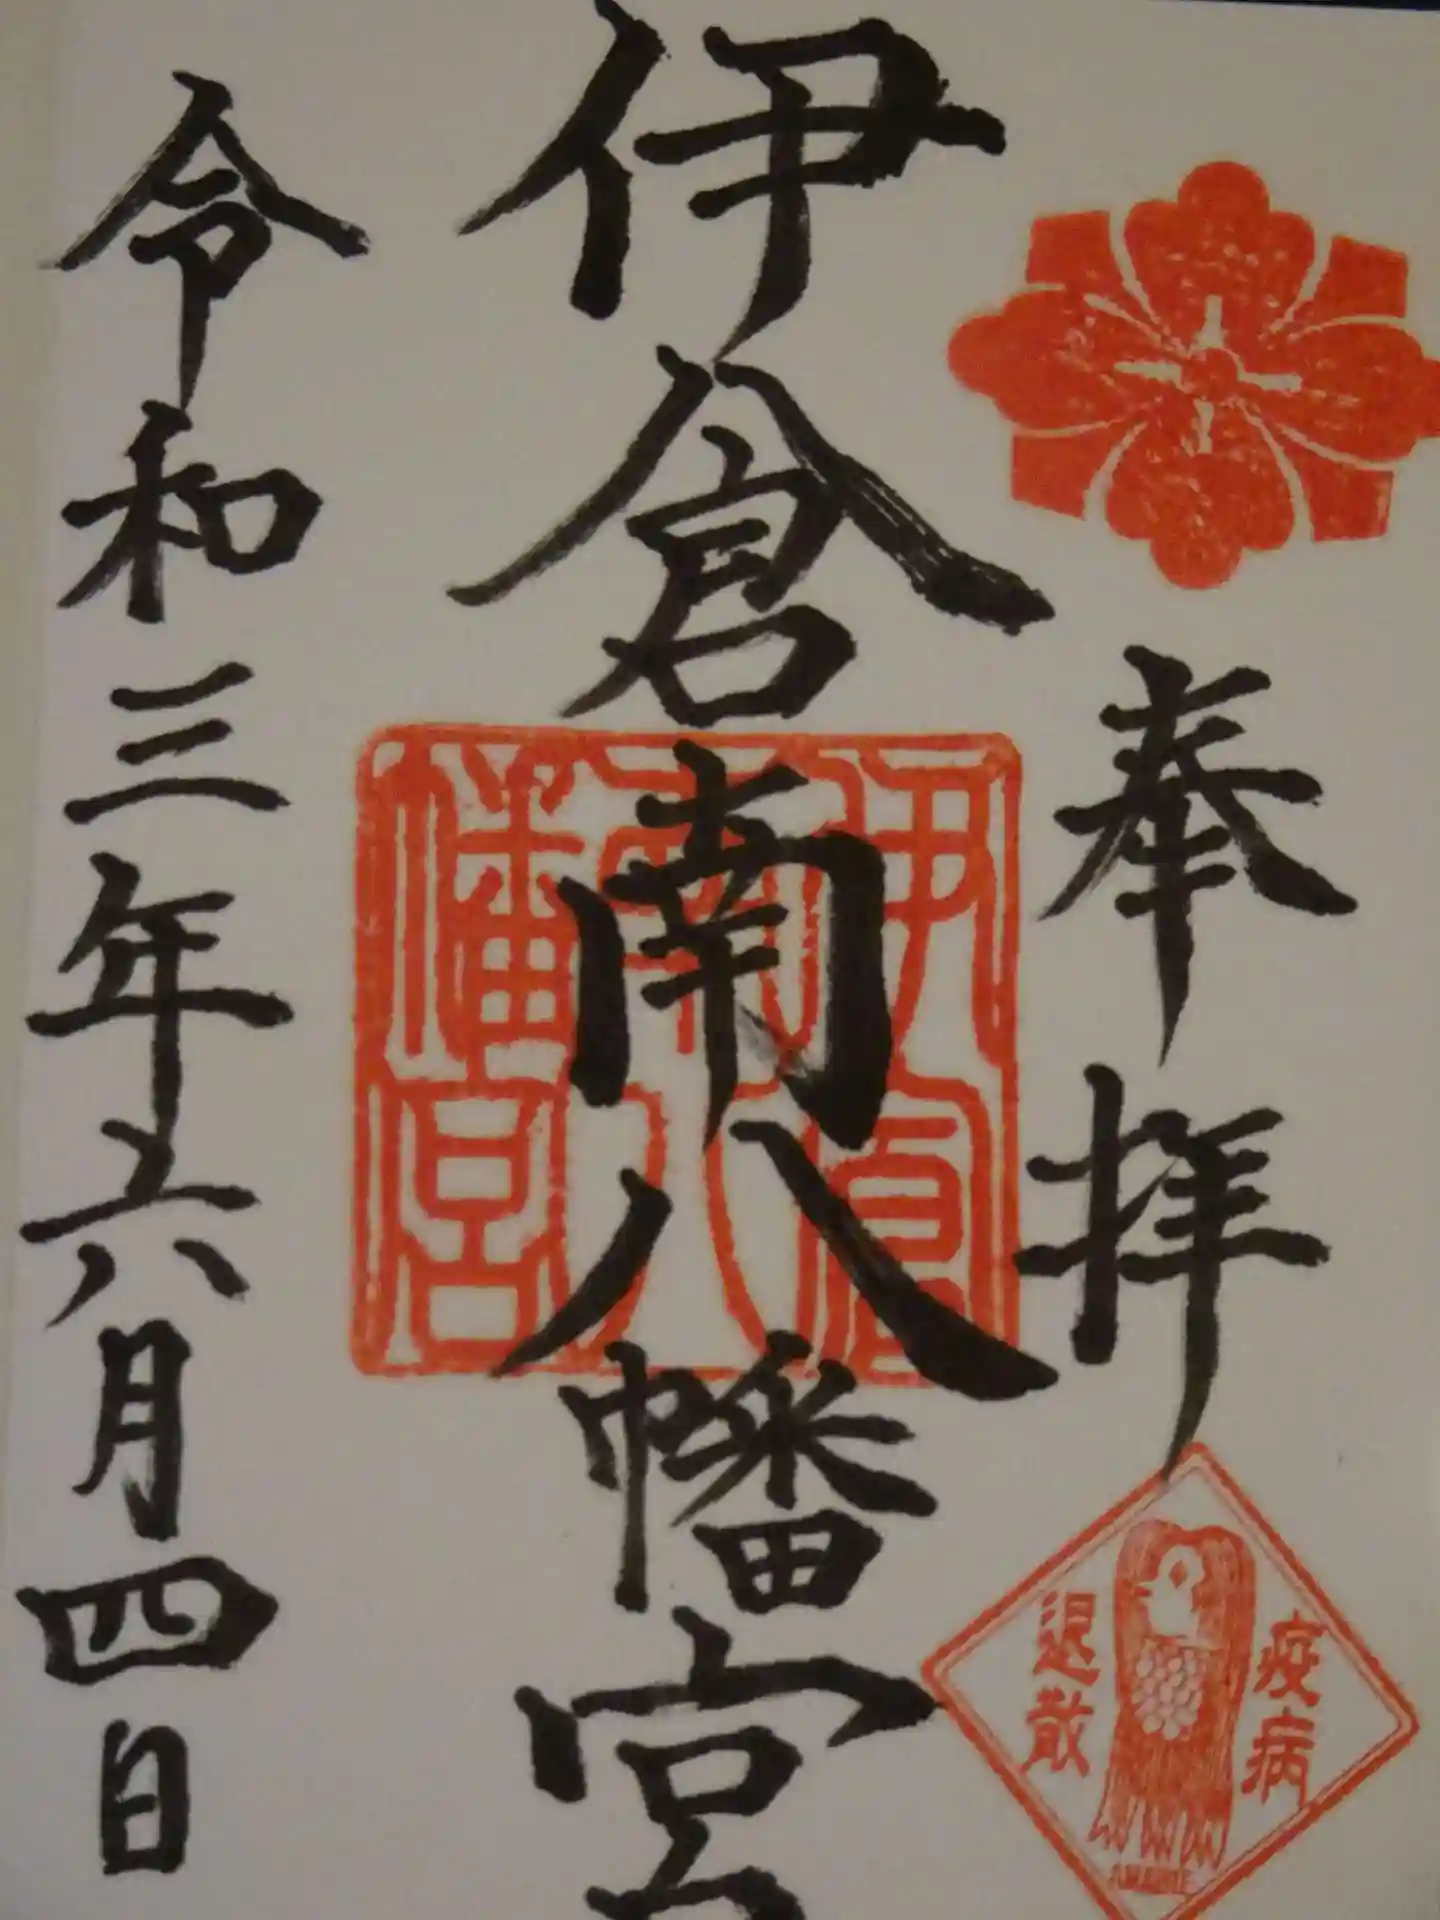 奉拝
疫病
退散
AMABIE
伊倉南八幡宮
伊倉
南八
幡宮
令和三年六月四日